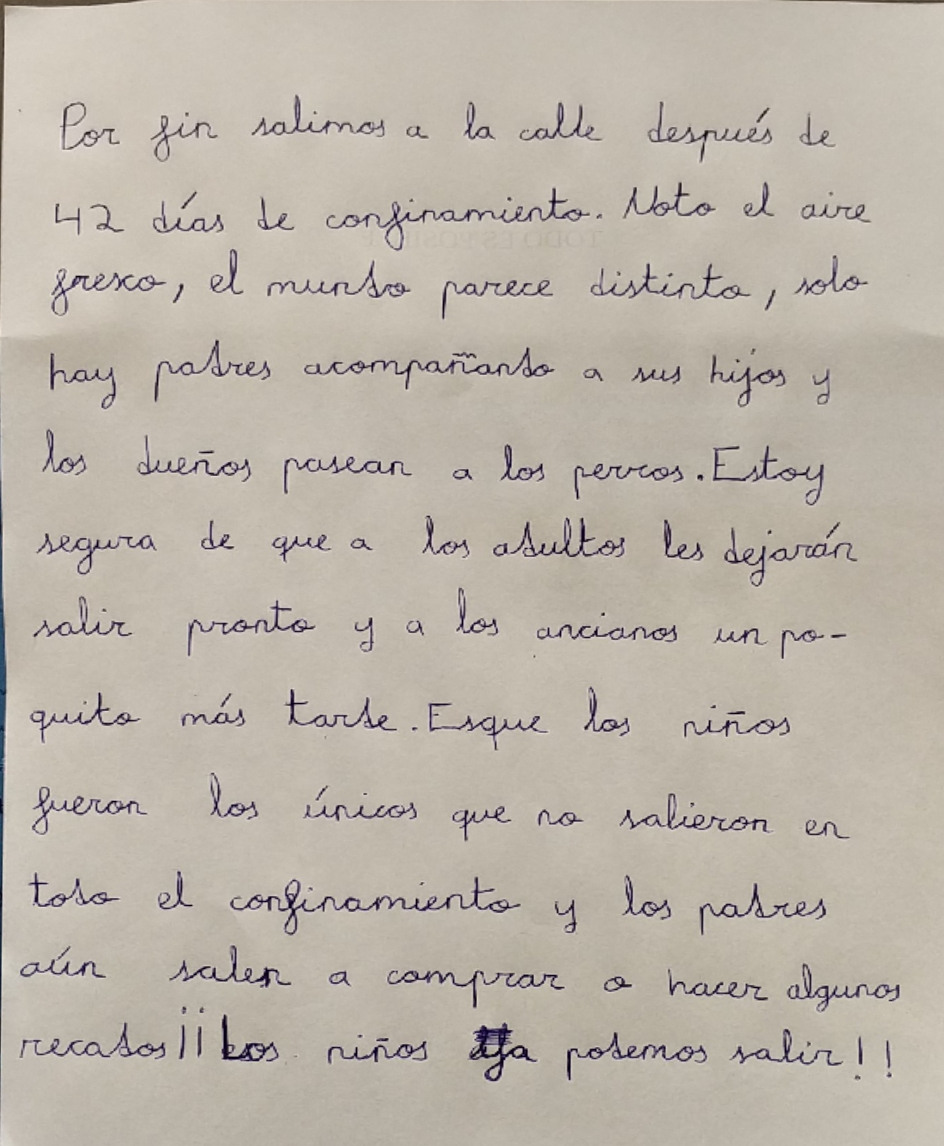 Por fin salimos a la calle después de
42 días de confinamiento. Noto el aire
fresco, el mundo parece distinto, solo
hay padres acompañando a sus hijos y
los dueños pasean a los perros. Estoy
segura de que a los adultos les dejarán
salir pronto y a los ancianos un po-
quito más tarde. Esque los niños
fueron los únicos que no salieron en
todo el confinamiento y los padres
aún salen a comprar o hacer algunos
recados ¡¡Los niños ya podemos salir!!